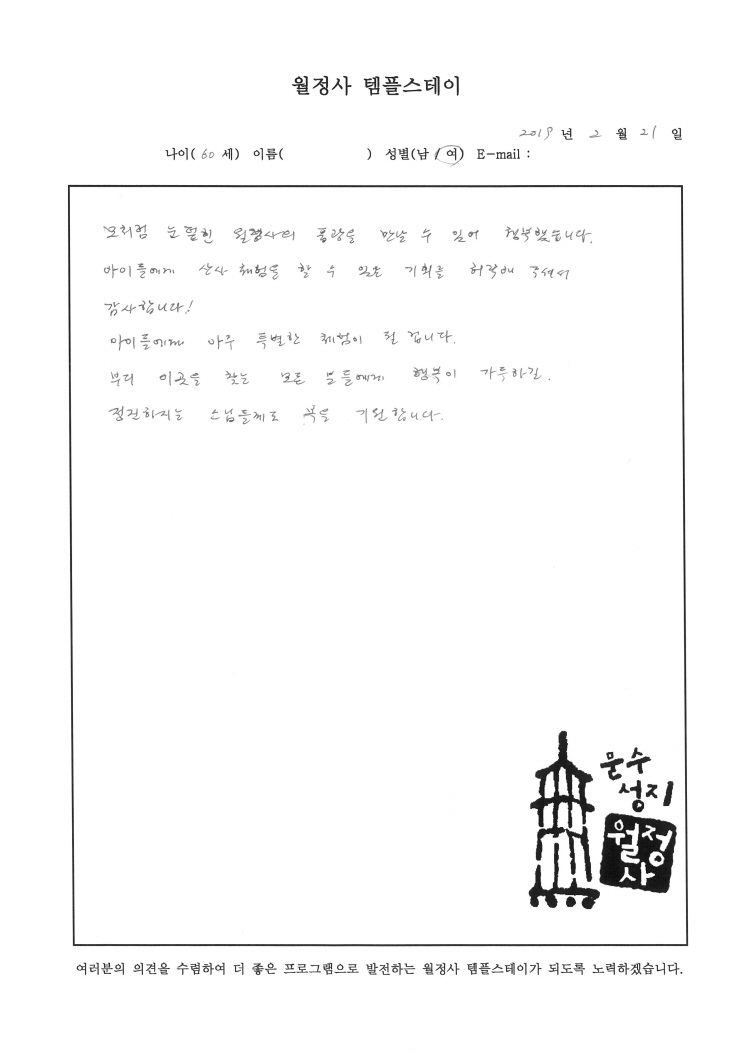 월정사 템플스테이
2019 년 2 월 21 일
나이( 60 세) 이름( ) 성별(남 / 여) E-mail :
모처럼 눈 덮힌 월정사의 풍광을 만날 수 있어 행복했습니다.
아이들에게 산사 체험을 할 수 있는 기회를 허락해 주셔서
감사합니다!
아이들에게 아주 특별한 체험이 될 겁니다.
부디 이곳을 찾는 모든 분들에게 행복이 가득하길.
정진하시는 스님들께도 복을 기원합니다.
문수
성지
월정
사
여러분의 의견을 수렴하여 더 좋은 프로그램으로 발전하는 월정사 템플스테이가 되도록 노력하겠습니다.